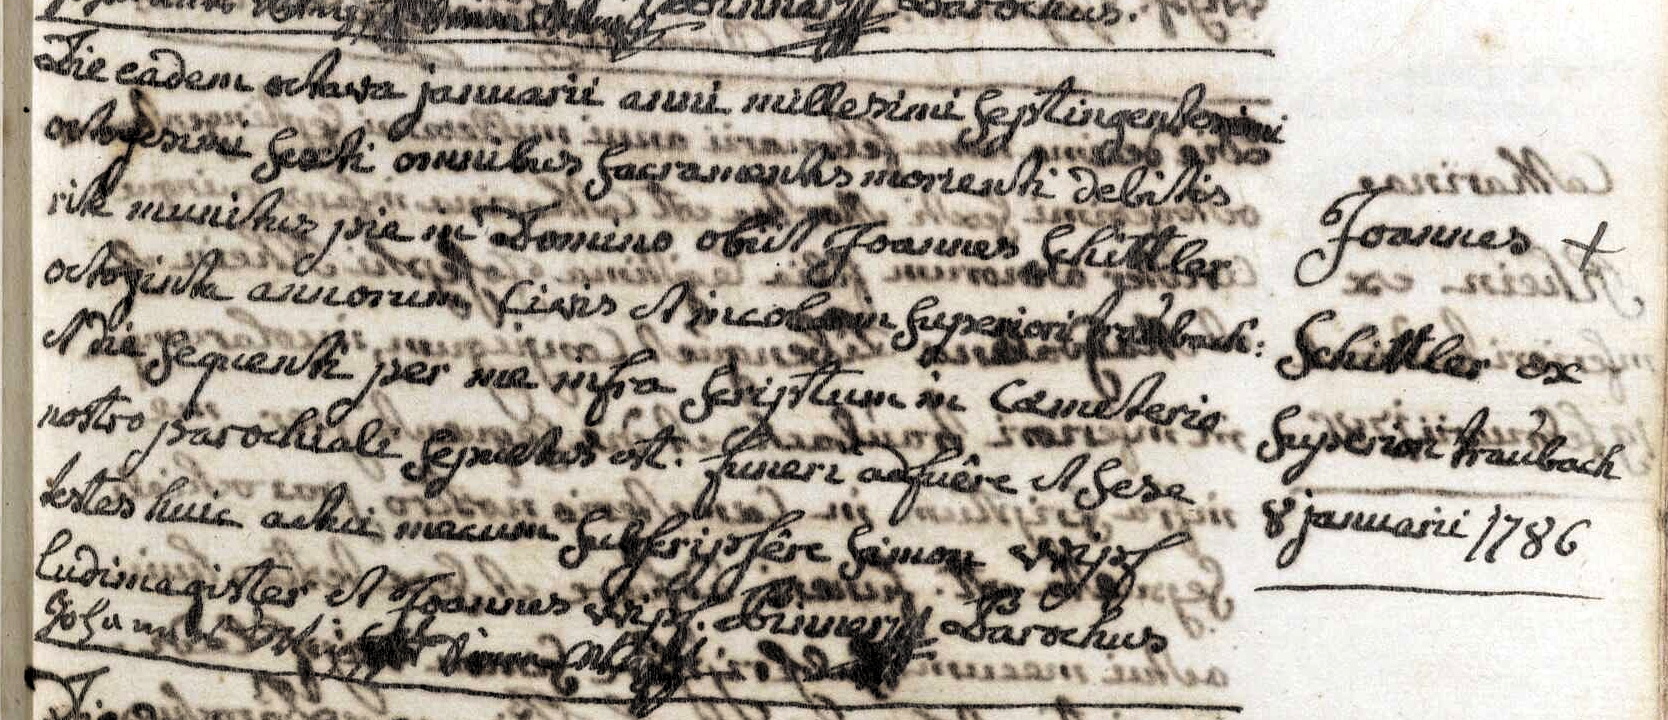 Parochus.
Die eadem octava januarii anni millesimi septingentesimi
octogesimi sexti omnibus sacramentis morienti debitis
rite munitus pie in Domino obiit Joannes Schittler
octoginta annorum, Civis et incola in superiori traubach:
et die sequenti per me infra scriptum in Cœmeterio
nostro parochiali sepultus est. funeri adfuêre et sese
testes huic actui mecum subscripsêre Simon Wipf
ludimagister et Joannes Wipf. Parochus
Johannes Simon
Die
Joannes +
Schittler ex
superiori traubach
8 januarii 1786